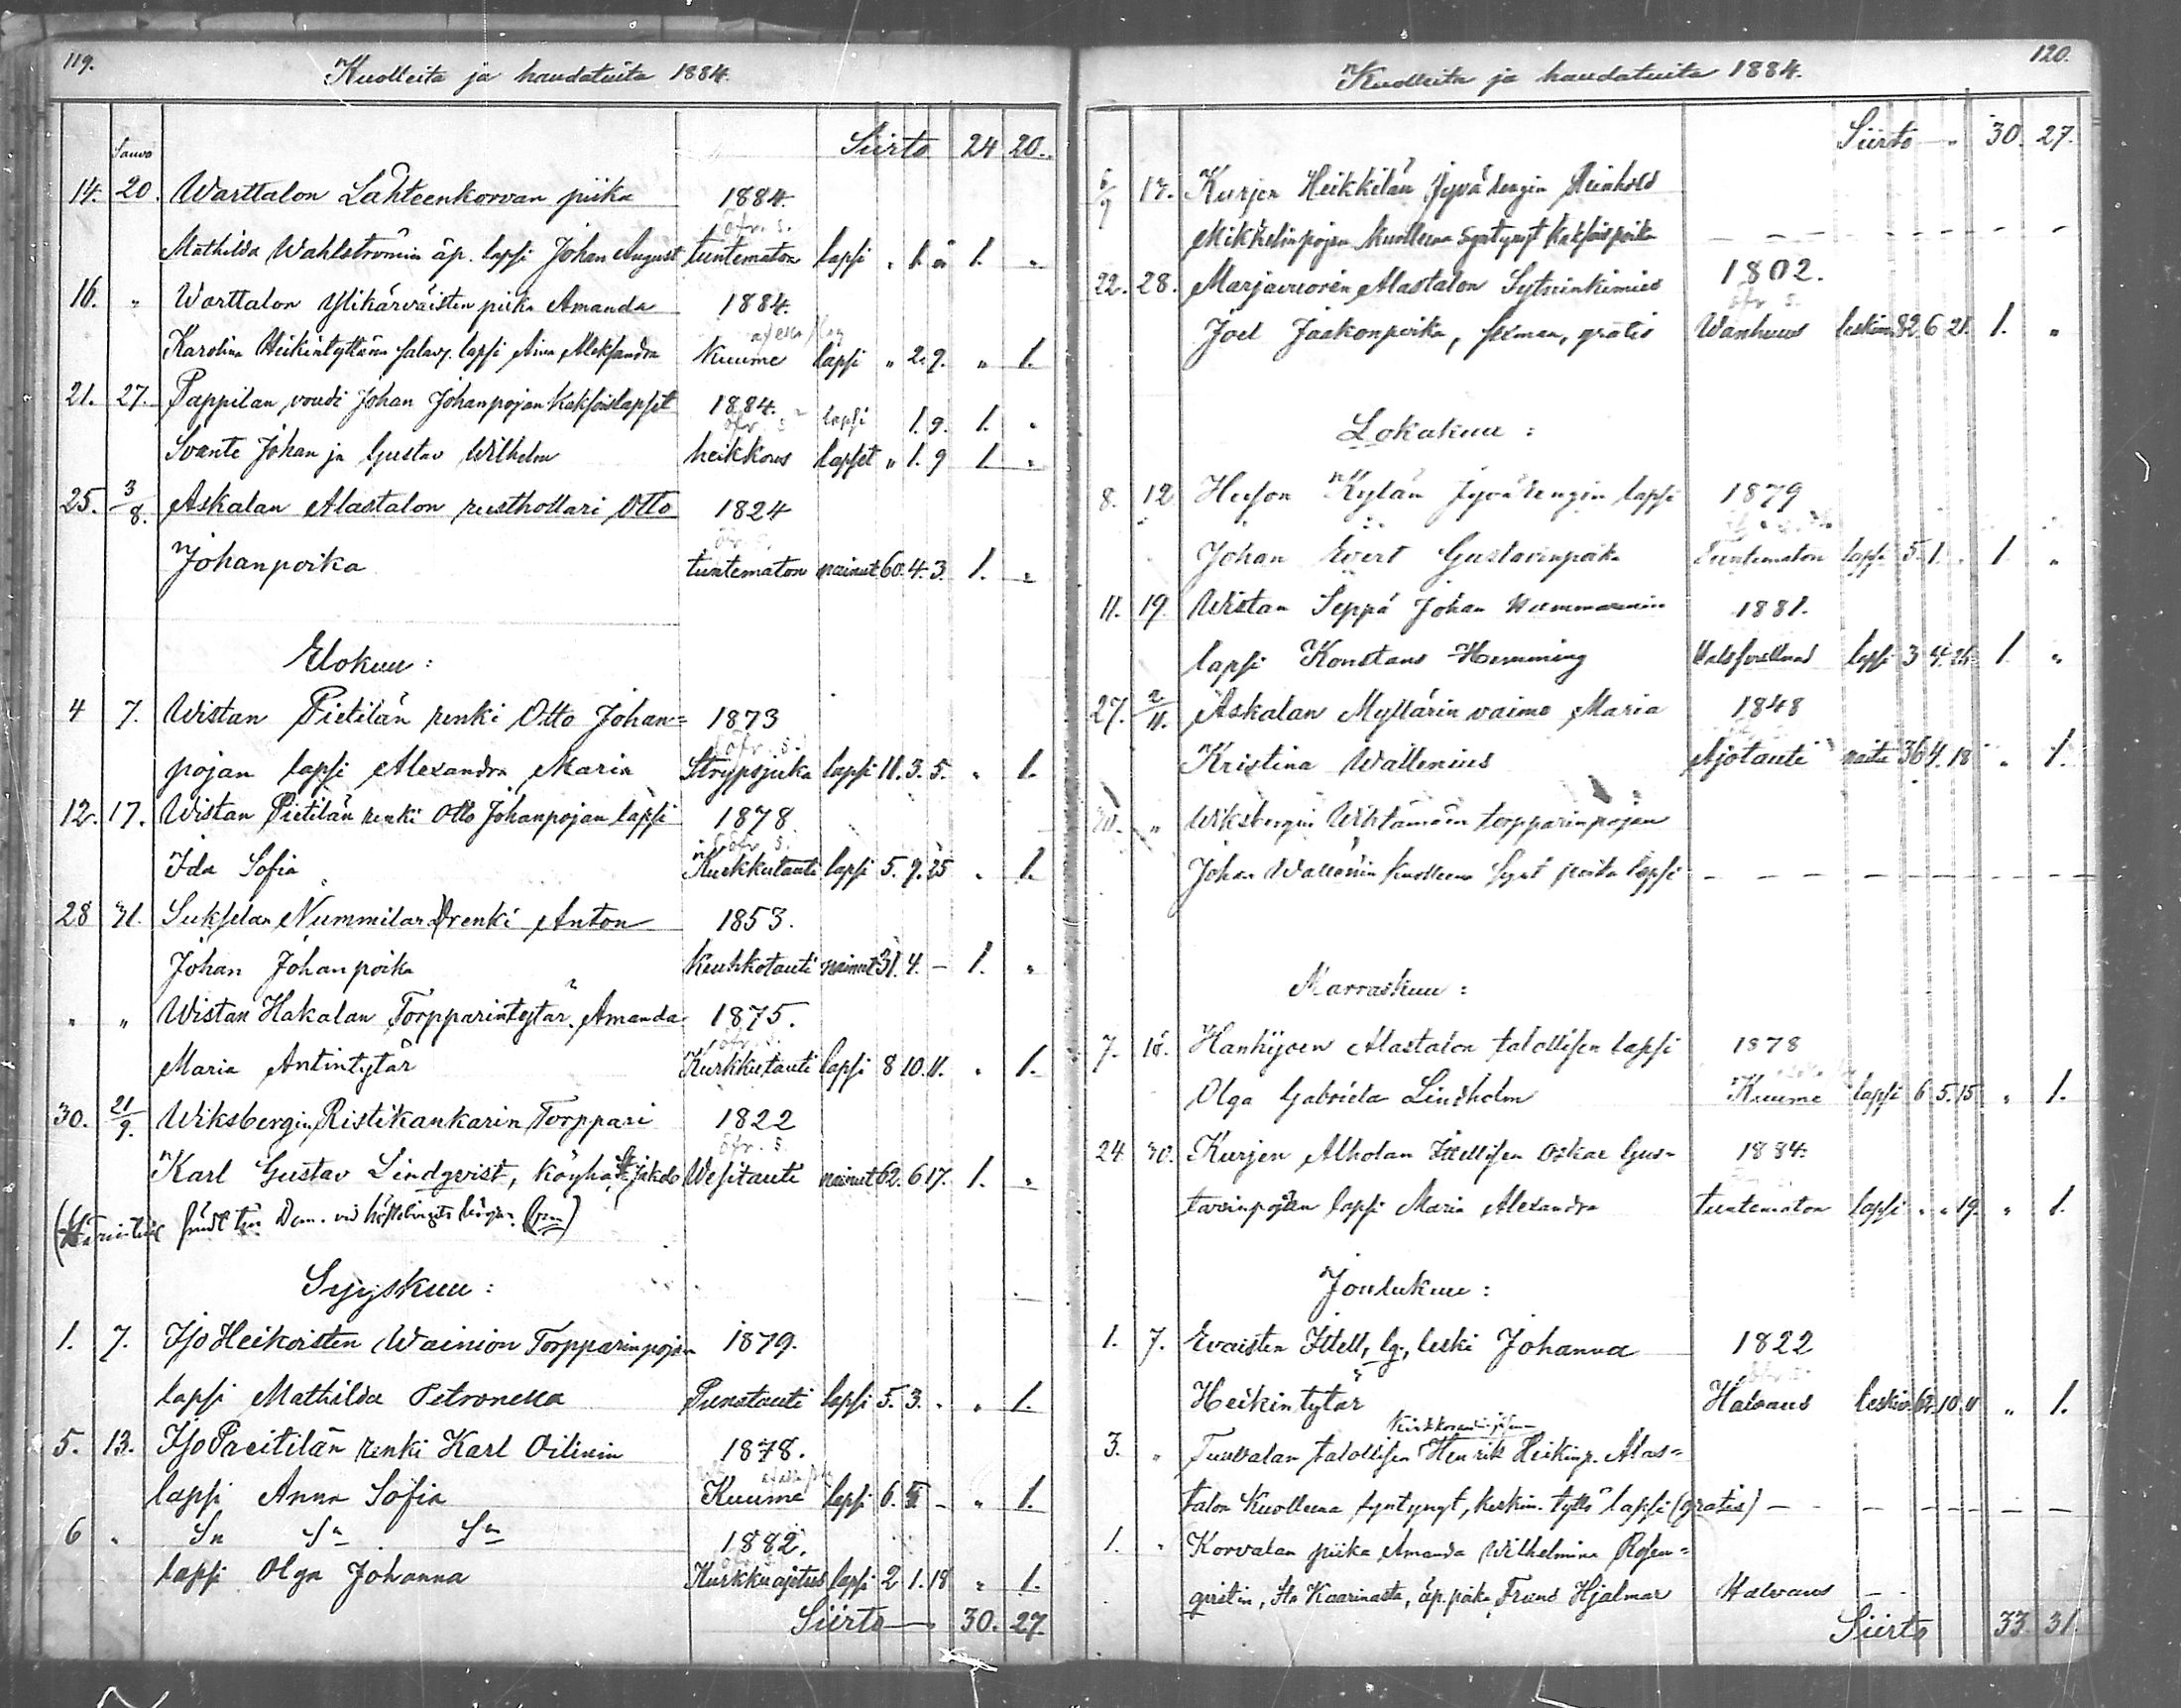 119.
Kuolleita ja haudatuita 1884.
Siirto 24 20.
14. 20. Warttalon Lähteenkorvan piika 1884.
öfr. s.
Mathilda Wahlströmin äp. lapsi Johan August tuntematon lapsi „ 1. „ 1. „
16. „ Warttalon Ylikärväisten piika Amanda 1884.
Karolina Heikintyttären lapsi Aina Aleksandra Kuume lapsi „ 2. 9. „ 1.
21. 27. Pappilan voudi Johan Johanpojan kaksoislapset 1884.
öfr. s. lapsi 1. 9. 1. „
Svante Johan ja Gustav Wilhelm heikkous lapset „ 1. 9 1. „
25. 3/8. Askalan Alastalon rusthollari Otto 1824
Johanpoika tuntematon nainut 60. 4. 3. 1. „
Elokuu:
4 7. Wistan Pietilän renki Otto Johan= 1873
öfr. s.
pojan lapsi Alexandra Maria Strypsjuka lapsi 11. 3. 5. „ 1.
12. 17. Wistan Pietilän renki Otto Johanpojan lapsi 1878
öfr. s.
Ida Sofia Kurkkutauti lapsi 5. 9. 25 „ 1.
28 31. Sukselan Nummilan renki Anton 1853.
Johan Johanpoika keuhkotauti nainut 31. 4. – 1. „
„ „ Wistan Hakalan Torpparintytär Amanda 1875.
öfr. s.
Maria Antintytär Kurkkutauti lapsi 8 10. 11. „ 1.
30. 21/9. Wiksbergin Ristikankarin Torppari 1822
öfr. s.
Karl Gustav Lindqvist, köyhä Wesitauti nainut 62. 6 17. 1. „
Syyskuu:
1. 7. Ijo Heikoisten Wainion Torpparinpojan 1879.
lapsi Mathilda Petronella Punatauti lapsi 5. 3. „ „ 1.
5. 13. Ijo Paeitilän renki Karl Oilinin 1878.
lapsi Anna Sofia Kuume lapsi 6. – „ 1.
6 „ Sn Sn Sn 1882.
lapsi Olga Johanna Kurkkuajetus lapsi 2 1. 18 „ 1.
Siirto 30. 27.
120.
Kuolleita ja haudatuita 1884.
Siirto 30. 27.
Kurjen Heikkilän Jyvärengin Reinhold
Mikkelinpojan kuolleena syntynyt kaksoispoika – – –
22. 28. Marjavuoren Alastalon Sytninkimies 1802.
öfr. s.
Joel Jaakonpoika, gratis Wanhuus leskim. 82. 6 21. 1. „
Lokakuu:
8. 12 Hejson Kylän Jyvärengin lapsi 1879
Johan Evert Gustavinpoika Tuntematon lapsi 5. 1. „ 1 „
11. 19. Wistan Seppä Johan 1881.
lapsi Konstans Hemming lapsi 3 4. 1. „
27. 2/11. Askalan Myllärin vaimo Maria 1848
Kristina Wallenius Ajotauti naitu 36 4. 18 „ 1.
„ Wiksbergin torpparinpojan
Johan kuolleena synt poika lapsi – – –
Marraskuu:
7. Hanhijoen Alastalon talollisen lapsi 1878
Olga Gabriela Lindholm Kuume lapsi 6 5. 15. „ 1.
24 30. Kurjen Alholan Itellisen Oskar Gus= 1884.
tavinpojan lapsi Maria Alexandra tuntematon lapsi „ „ 19. „ 1.
Joulukuu:
1. 7. Evaisten Itell, lg., leski Johanna 1822
Heikintytär Halvaus leskiv. 62. 10. „ 1.
3. „ Tuulalan talollisen Henrik Heikinp. Alas=
talon Kuolleena syntynyt, keskin. tyttö lapsi (gratis) – – –
1. „ Korvalan piika Amanda Wilhelmina Rosen=
qvistin, St. Kaarinasta, äp. poika Frans Hjalmar Halvaus – „
Siirto 33. 31.